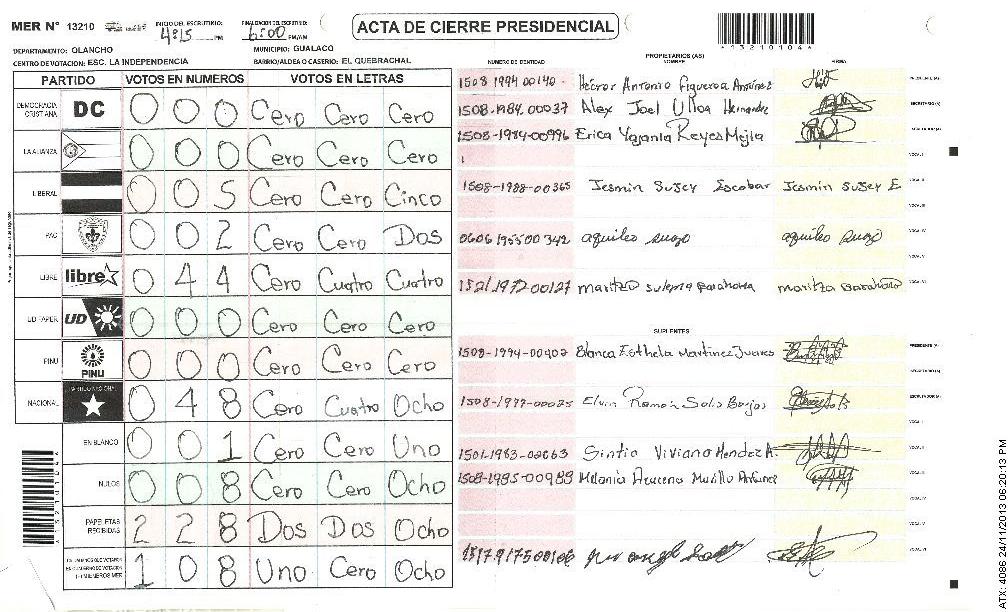 MER N° 13210 INICIO DEL ESCRUTINIO: 4:15 PM FINALIZACION DEL ESCRUTINIO: 6:00 PM/AM ACTA DE CIERRE PRESIDENCIAL *13210104*
DEPARTAMENTO: OLANCHO MUNICIPIO: GUALACO
CENTRO DE VOTACION: ESC. LA INDEPENDENCIA BARRIO/ALDEA O CASERIO: EL QUEBRACHAL
PARTIDO VOTOS EN NUMEROS VOTOS EN LETRAS
DEMOCRACIA CRISTIANA DC 0 0 0 Cero Cero Cero
LA ALIANZA 0 0 0 Cero Cero Cero
LIBERAL 0 0 5 Cero Cero Cinco
PAC 0 0 2 Cero Cero Dos
LIBRE libre 0 4 4 Cero Cuatro Cuatro
UD FAPER UD 0 0 0 Cero Cero Cero
PINU PINU 0 0 0 Cero Cero Cero
NACIONAL PARTIDO NACIONAL 0 4 8 Cero Cuatro Ocho
EN BLANCO 0 0 1 Cero Cero Uno
NULOS 0 0 8 Cero Cero Ocho
PAPELETAS RECIBIDAS 2 2 8 Dos Dos Ocho
1 0 8 Uno Cero Ocho
PROPIETARIOS (AS)
NUMERO DE IDENTIDAD NOMBRE FIRMA
1508 1994 00140 Héctor Antonio Figueroa Antúnez PRESIDENTE(A)
1508-1984-00037 Alex Joel Ulloa Hernandez SECRETARIO(A)
1508-1984-00996 Erica Yajania Reyes Mejia ESCRUTADOR(A)
VOCAL I
1508-1988-00365 Jesmin Sujey Escobar Jesmin Sujey E VOCAL II
VOCAL III
0606 1955 00342 aquileo suazo aquileo suazo VOCAL IV
VOCAL V
1521 1972-00127 maritza sulema Barahona maritza Barahona VOCAL VI
SUPLENTES
1508-1994-00402 Blanca Esthela Martinez Juarez PRESIDENTE (A)
SECRETARIO(A)
1508-1977-00025 Elvin Ramón Solis Borjas ESCRUTADOR(A)
VOCAL I
1501-1983-02063 Sintia Viviana Mendez A. VOCAL II
1508-1985-00989 Melania Azucena Murillo Antúnez VOCAL III
VOCAL IV
VOCAL V
VOCAL VI
ATX: 4086 24/11/2013 06:20:13 PM